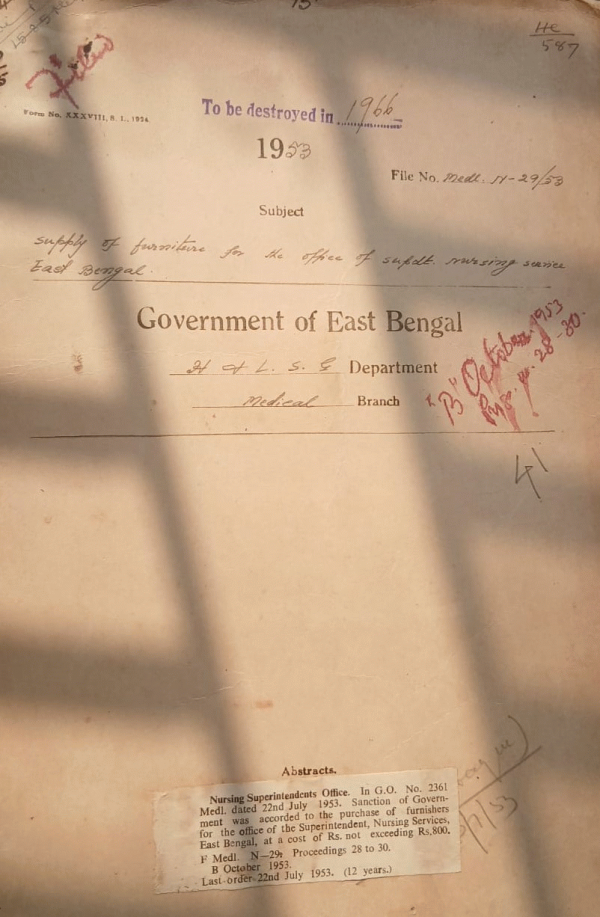 HC
587
Form No. XXXVIII, S. I., 1924
To be destroyed in 1966
1953
File No. Medl. N-29/53
Subject
supply of furniture for the office of supdt. nursing service
East Bengal.
Government of East Bengal
H & L. S. G Department
Medical Branch
"B" October 1953
28-30.
Abstracts.
Nursing Superintendents Office. In G.O. No. 2361
Medl. dated 22nd July 1953. Sanction of Govern-
ment was accorded to the purchase of furnishers
for the office of the Superintendent, Nursing Services,
East Bengal, at a cost of Rs. not exceeding Rs,800.
F Medl. N—29; Proceedings 28 to 30.
B October 1953.
Last order 22nd July 1953. (12 years.)